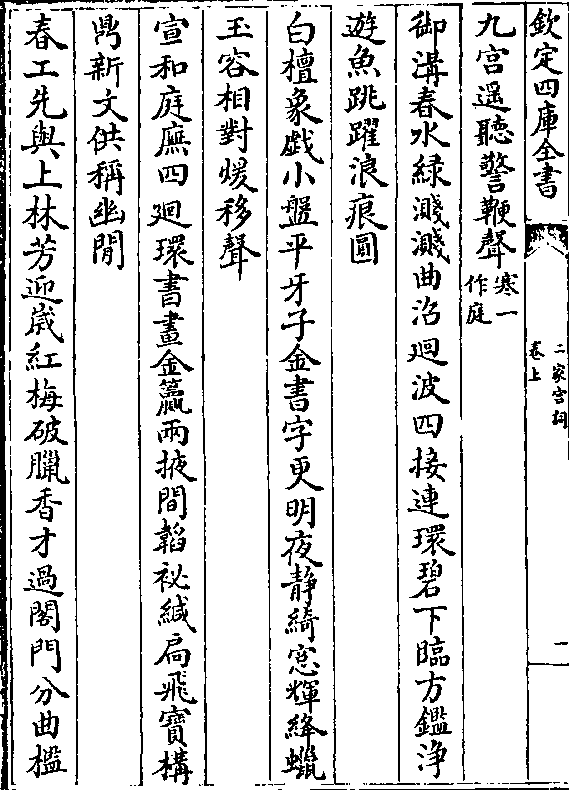 欽定四庫全書
二家宮詞
卷上
一
九宮遥聽警鞭聲寒一作庭
御溝春水緑濺濺曲沼廻波四接連環碧下臨方鑑浄
遊魚跳躍浪痕圓
白檀象戱小盤平牙子金書字更明夜静綺窓輝絳蠟
玉容相對煖移聲
宣和庭廡四廻環書畫金籯兩掖間韜袐緘扄飛寳構
鼎新文供稱幽閒
春工先與上林芳迎嵗紅梅破臘香才過閣門分曲檻